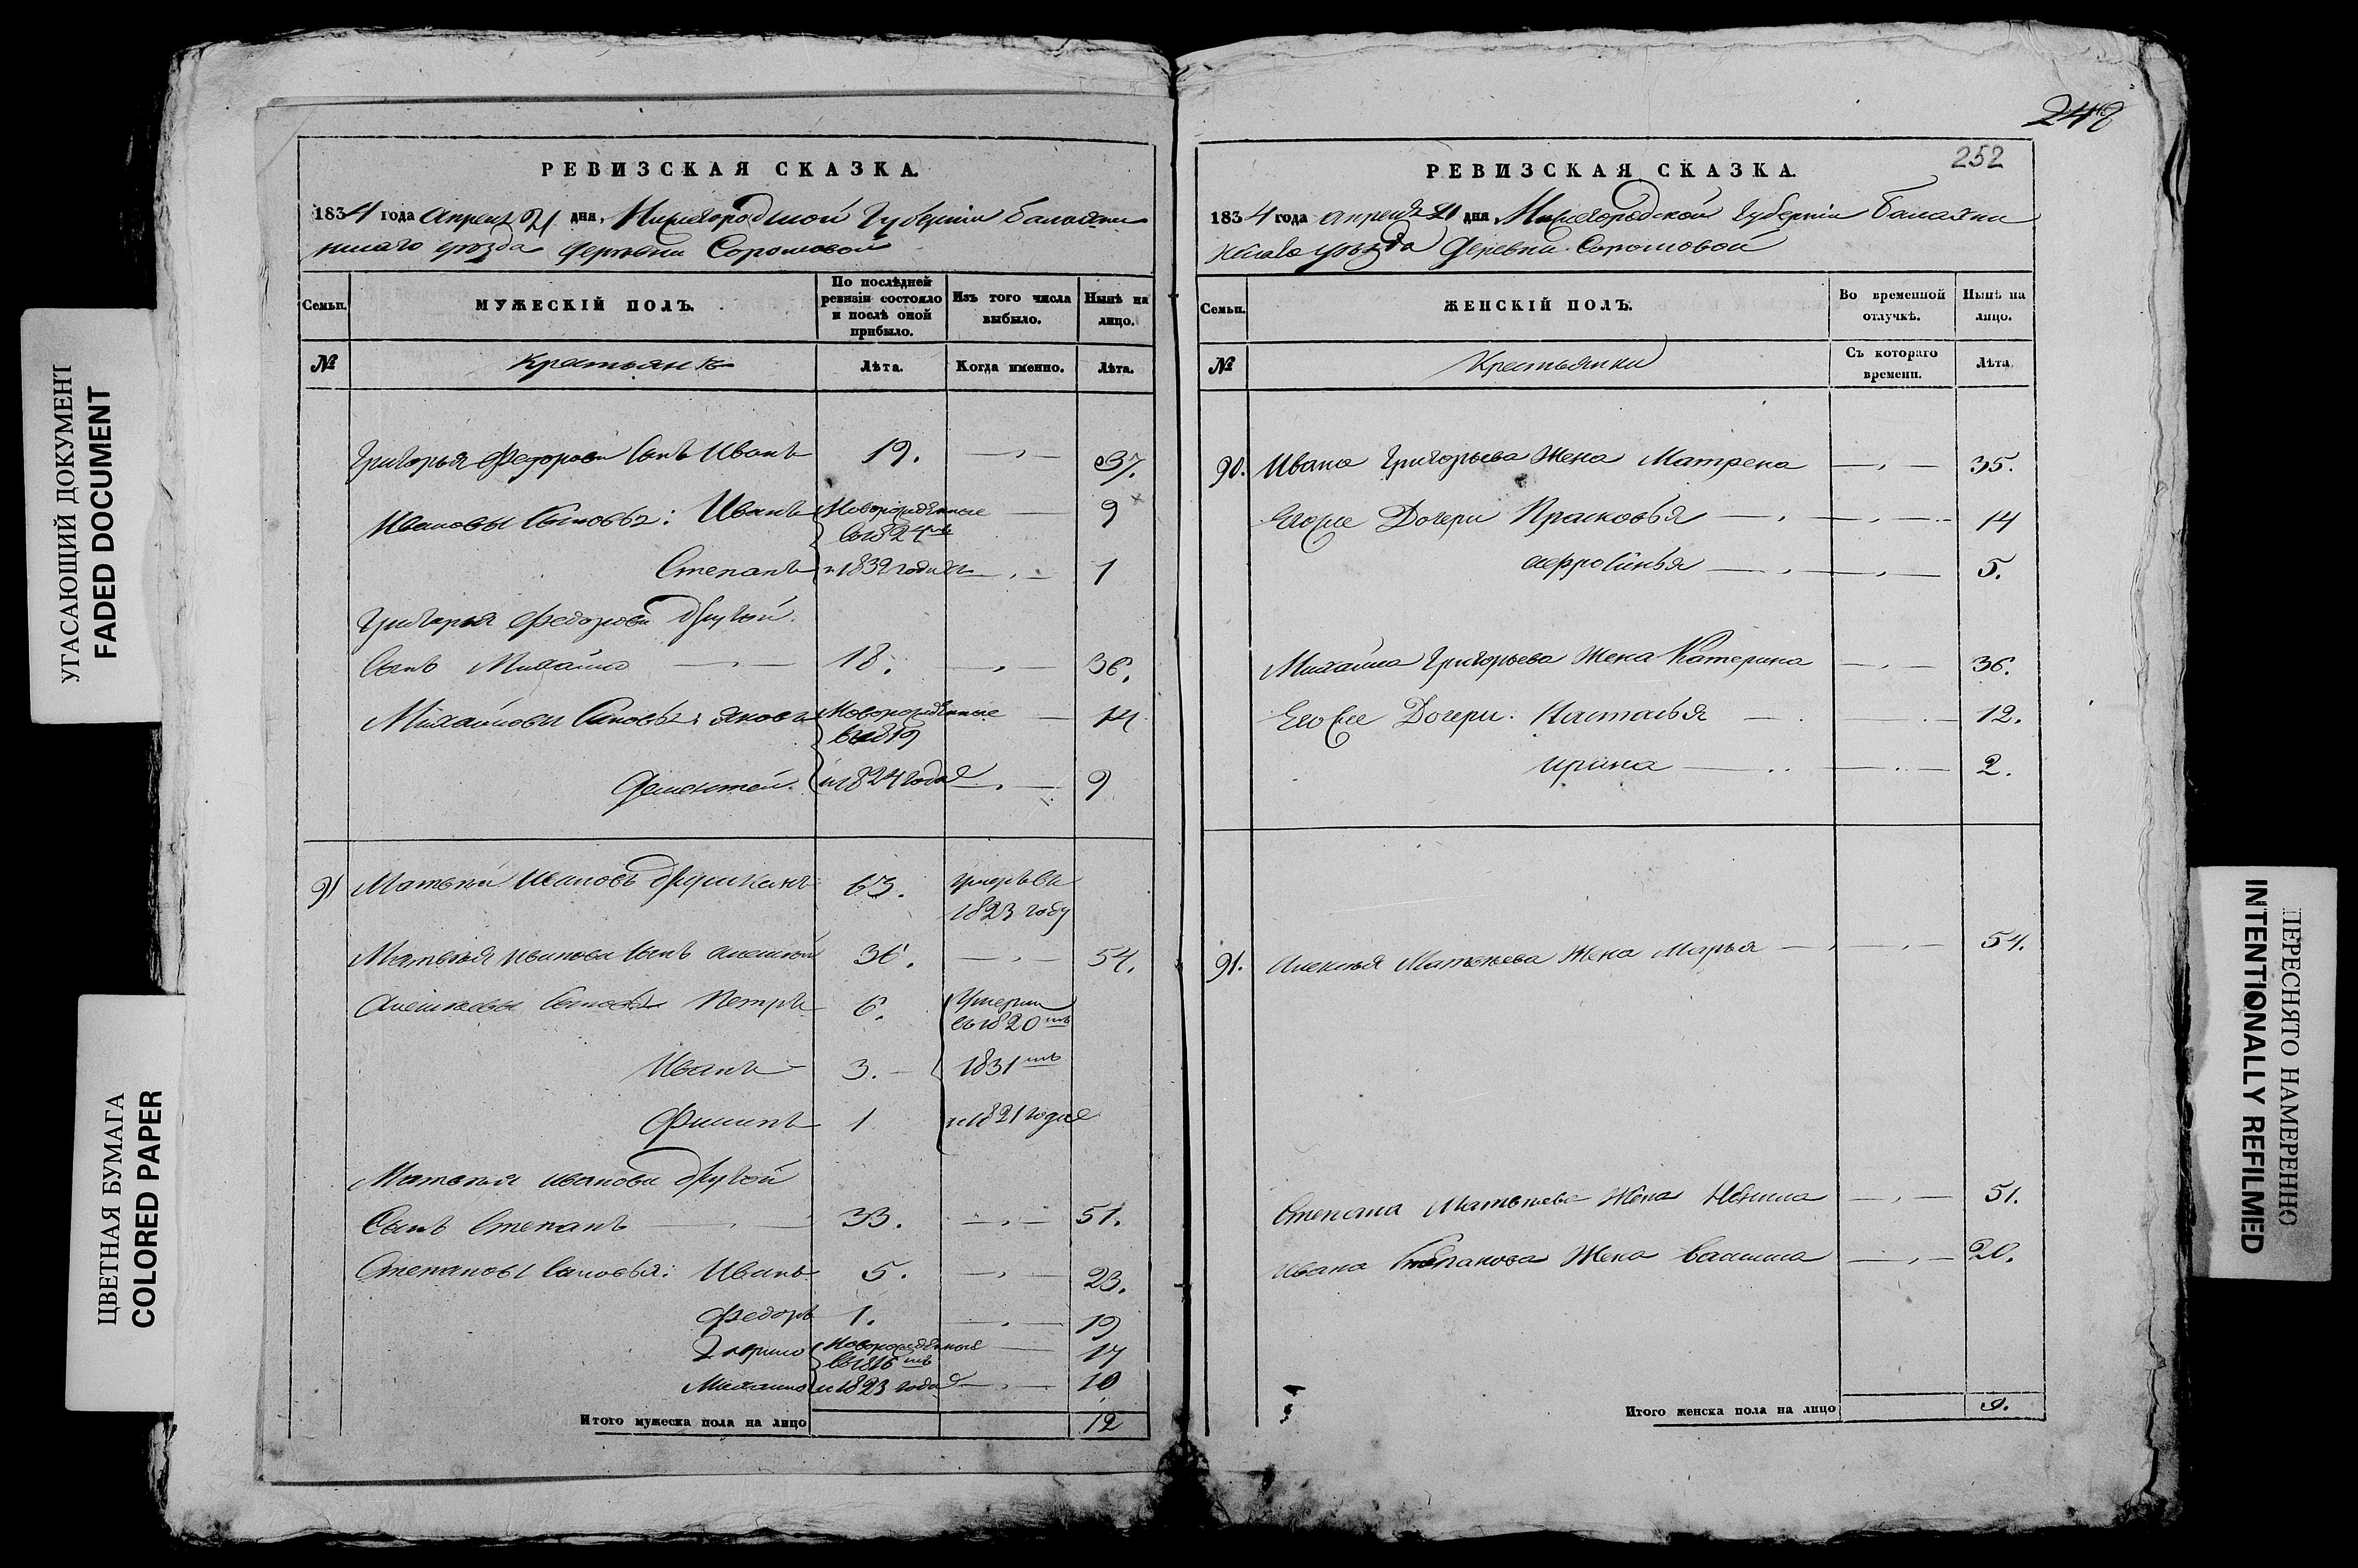 УГАСАЮЩИЙ ДОКУМЕНТ
FADED DOCUMENT
ЦВЕТНАЯ БУМАГА
COLORED PAPER
РЕВИЗСКАЯ СКАЗКА.
1834 года Апреля 21 дня, Нижегородской Губернiи Балахни
нскаго уѣзда деревни Сормовой
Семьи.
МУЖЕСКIЙ ПОЛЪ.
По послѣдней ревизiи состояло и послѣ оной прибыло.
Изъ того числа выбыло.
Нынѣ на лицо.
№
Крестьянъ
Лѣта.
Когда именно.
Лѣта.
Григорья Федорова Сынъ Иванъ 19. 37.
Ивановы Сыновья: Иванъ Новорожденные 9
въ 1824мъ
Степанъ и 1832 годахъ 1
Григорья Федорова другой
Сынъ Михайло 18. 36.
Михайловы Сыновья: Яковъ Новорожденные 14
въ 1819
Дементей и 1824 годахъ 9
91 Матвей Ивановъ 63. умеръ въ
1823 году
Матвѣя Иванова Сынъ Алексей 36. 54.
Алексѣевы Сыновья Петръ 6. Умерли
въ 1820мъ
Иванъ 3. 1831мъ
Филипъ 1 и 1821 годахъ
Матвѣя Иванова другой
Сынъ Степанъ 33. 51.
Степановы Сыновья: Иванъ 5. 23.
Федоръ 1. 19
Гаврило Новорожденные 17
въ 1816мъ
Михайло и 1823 годахъ 10
Итого мужеска пола на лицо 12
248
252
РЕВИЗСКАЯ СКАЗКА.
1834 года Апреля 21 дня, Нижегородской Губернiи Балахни
нскаго уѣзда деревни Сормовой
Семьи.
ЖЕНСКIЙ ПОЛЪ.
Во временной отлучкѣ.
Нынѣ на лицо.
№
Крестьянки
Съ котораго времени.
Лѣта.
90. Ивана Григорьева Жена Матрена 35.
Его же Дочери Прасковья 14
Афросинья 5.
Михайла Григорьева Жена Катерина 36.
Его же Дочери: Настасья 12.
Ирина 2.
91. Алексѣя Матвѣева Жена Марья 54.
Степана Матвѣева Жена Ненила 51.
Ивана Степанова Жена Василиса 20.
Итого женска пола на лицо 9.
ПЕРЕСНЯТО НАМЕРЕННО
INTENTIONALLY REFILMED